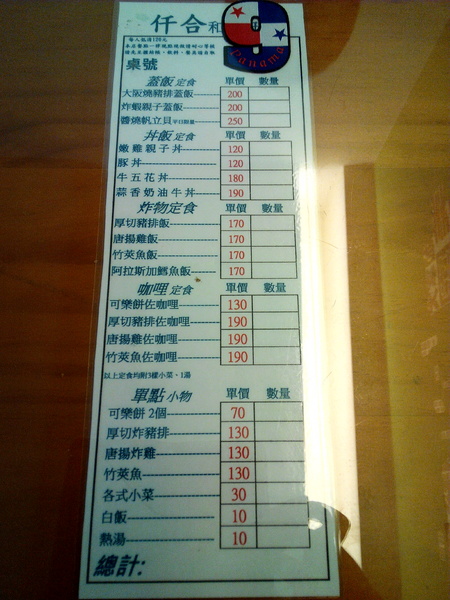 仟合和
9
Panama
每人低消120元
桌號
蓋飯定食 單價 數量
大阪燒豬排蓋飯 200
炸蝦親子蓋飯 200
醬燒帆立貝 平日限量 250
丼飯定食 單價 數量
嫩雞親子丼 120
豚丼 120
牛五花丼 180
蒜香奶油牛丼 190
炸物定食 單價 數量
厚切豬排飯 170
唐揚雞飯 170
竹莢魚飯 170
阿拉斯加鱈魚飯 170
咖哩定食 單價 數量
可樂餅佐咖哩 130
厚切豬排佐咖哩 190
唐揚雞佐咖哩 190
竹莢魚佐咖哩 190
以上定食均附3樣小菜、1湯
單點小物 單價 數量
可樂餅 2個 70
厚切炸豬排 130
唐揚炸雞 130
竹莢魚 130
各式小菜 30
白飯 10
熱湯 10
總計: